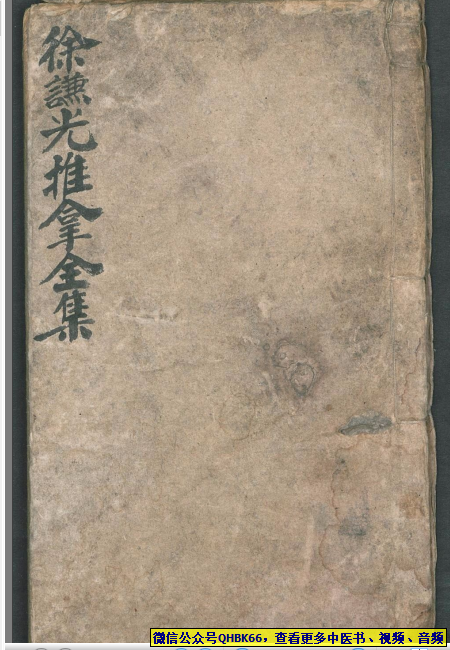 徐謙光推拿全集
微信公众号QHBK66，查看更多中医书、视频、音频